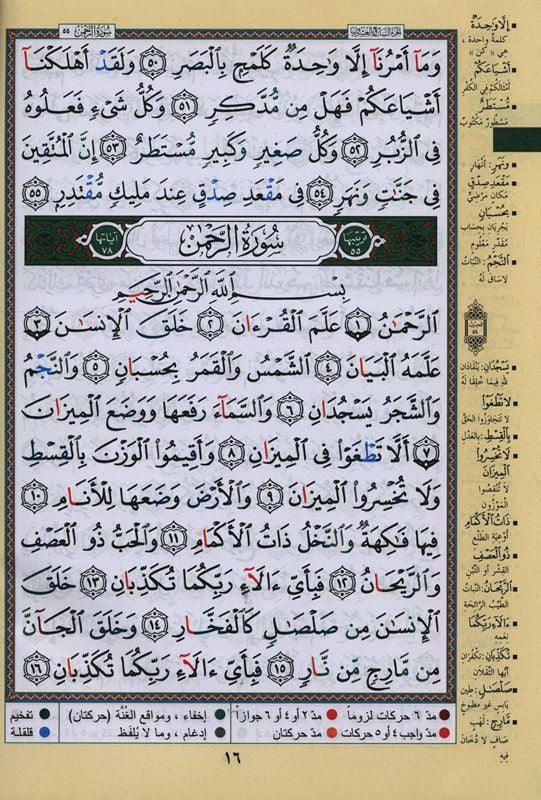 سُورَةُ الرَّحْمٰن ٥٥
الجزء السابع والعشرون
وَمَآ أَمْرُنَآ إِلَّا وَٰحِدَةٌ كَلَمْحٍۭ بِٱلْبَصَرِ ﴿٥٠﴾ وَلَقَدْ أَهْلَكْنَآ
أَشْيَاعَكُمْ فَهَلْ مِن مُّدَّكِرٍ ﴿٥١﴾ وَكُلُّ شَىْءٍ فَعَلُوهُ
فِى ٱلزُّبُرِ ﴿٥٢﴾ وَكُلُّ صَغِيرٍ وَكَبِيرٍ مُّسْتَطَرٌ ﴿٥٣﴾ إِنَّ ٱلْمُتَّقِينَ
فِى جَنَّٰتٍ وَنَهَرٍ ﴿٥٤﴾ فِى مَقْعَدِ صِدْقٍ عِندَ مَلِيكٍ مُّقْتَدِرٍۭ ﴿٥٥﴾
ترتيبها ٥٥ سُورَةُ الرَّحْمٰن آياتها ٧٨
بِسْمِ ٱللَّهِ ٱلرَّحْمَٰنِ ٱلرَّحِيمِ
ٱلرَّحْمَٰنُ ﴿١﴾ عَلَّمَ ٱلْقُرْءَانَ ﴿٢﴾ خَلَقَ ٱلْإِنسَٰنَ ﴿٣﴾
عَلَّمَهُ ٱلْبَيَانَ ﴿٤﴾ ٱلشَّمْسُ وَٱلْقَمَرُ بِحُسْبَانٍ ﴿٥﴾ وَٱلنَّجْمُ
وَٱلشَّجَرُ يَسْجُدَانِ ﴿٦﴾ وَٱلسَّمَآءَ رَفَعَهَا وَوَضَعَ ٱلْمِيزَانَ
﴿٧﴾ أَلَّا تَطْغَوْا۟ فِى ٱلْمِيزَانِ ﴿٨﴾ وَأَقِيمُوا۟ ٱلْوَزْنَ بِٱلْقِسْطِ
وَلَا تُخْسِرُوا۟ ٱلْمِيزَانَ ﴿٩﴾ وَٱلْأَرْضَ وَضَعَهَا لِلْأَنَامِ ﴿١٠﴾
فِيهَا فَٰكِهَةٌ وَٱلنَّخْلُ ذَاتُ ٱلْأَكْمَامِ ﴿١١﴾ وَٱلْحَبُّ ذُو ٱلْعَصْفِ
وَٱلرَّيْحَانُ ﴿١٢﴾ فَبِأَىِّ ءَالَآءِ رَبِّكُمَا تُكَذِّبَانِ ﴿١٣﴾ خَلَقَ
ٱلْإِنسَٰنَ مِن صَلْصَٰلٍ كَٱلْفَخَّارِ ﴿١٤﴾ وَخَلَقَ ٱلْجَآنَّ
مِن مَّارِجٍ مِّن نَّارٍ ﴿١٥﴾ فَبِأَىِّ ءَالَآءِ رَبِّكُمَا تُكَذِّبَانِ ﴿١٦﴾
إلا واحدة
كلمة واحدة،
هي «كن»
أشياعكم
أمثالكم في الكفر
مستطر
مسطور مكتوب
ونهر: أنهار
مقعد صدق
مكان مرضي
بحسبان
يجريان بحساب
مقدر معلوم
النجم: النبات
لا ساق له
يسجدان: ينقادان
لله فيما خلقا له
لا تطغوا
لا تتجاوزوا الحق
بالقسط: بالعدل
لا تخسروا
الميزان
لا تنقصوا
الموزون
ذات الأكمام
أوعية الطلع
ذو العصف
القشر أو التبن
الريحان: النبات
الطيب الرائحة
ءالاء ربكما
نعمه
تكذبان: تكفران
أيها الثقلان
صلصال: طين
يابس غير مطبوخ
مارج: لهب
صاف لا دخان
فيه
مدّ ٦ حركات لزوماً
مدّ ٢ أو ٤ أو ٦ جوازاً
إخفاء، ومواقع الغُنَّة (حركتان)
تفخيم
مدّ واجب ٤ أو ٥ حركات
مدّ حركتان
إدغام، وما لا يُلفَظ
قلقلة
١٦